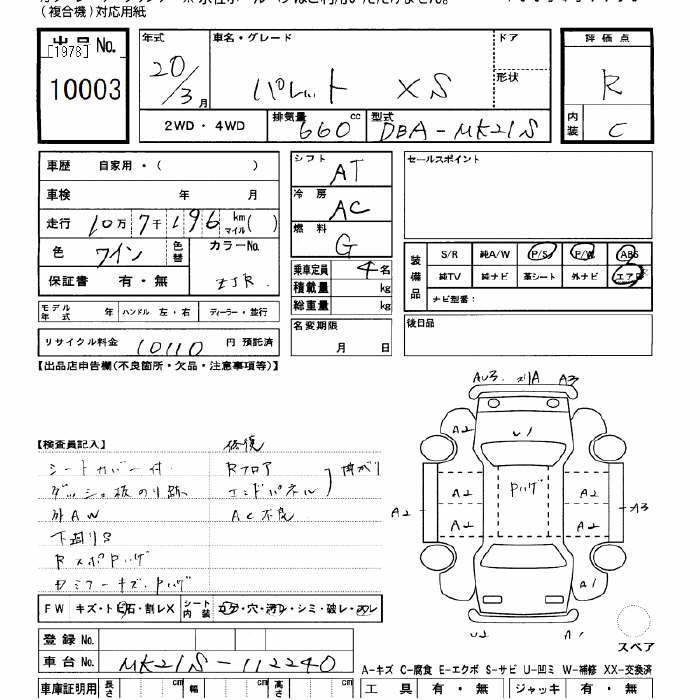 (複合機)対応用紙
出品 No.
[1978]
10003
年式 20/3月
車名・グレード パレット XS
ドア
形状
2WD・4WD
排気量 660 cc
型式 DBA-MK21S
評価点 R
内装 C
車歴 自家用・( )
車検 年 月
走行 10万7千196 km マイル( )
色 ワイン 色替
カラーNo. ZJR.
保証書 有・無
シフト AT
冷房 AC
燃料 G
乗車定員 4名
積載量 kg
総重量 kg
セールスポイント
装備品 S/R 純A/W P/S P/W ABS
純TV 純ナビ 革シート 外ナビ エアB
ナビ型番:
モデル年式 年 ハンドル 左・右 ディーラー・並行
名変期限 月 日
後日品
リサイクル料金 10110 円 預託済
【出品店申告欄(不良箇所・欠品・注意事項等)】
AU3. A3
A2
A2 A2
A2 A3
A2 A2
A1
U2 A2
スペア
【検査員記入】 修復
シートカバー付. Rフロア
ダッシュ板のり跡 エンドパネル 曲がり
外AW AC不良
下廻りS
FW キズ・ト ビ石・割レX シート内装 コゲ・穴・汚レ・シミ・破レ・スレ
登録 No.
車台 No. MK21S-112240
A-キズ C-腐食 E-エクボ S-サビ U-凹ミ W-補修 XX-交換済
車庫証明用 長さ cm 幅 cm 高さ cm
工具 有・無 ジャッキ 有・無